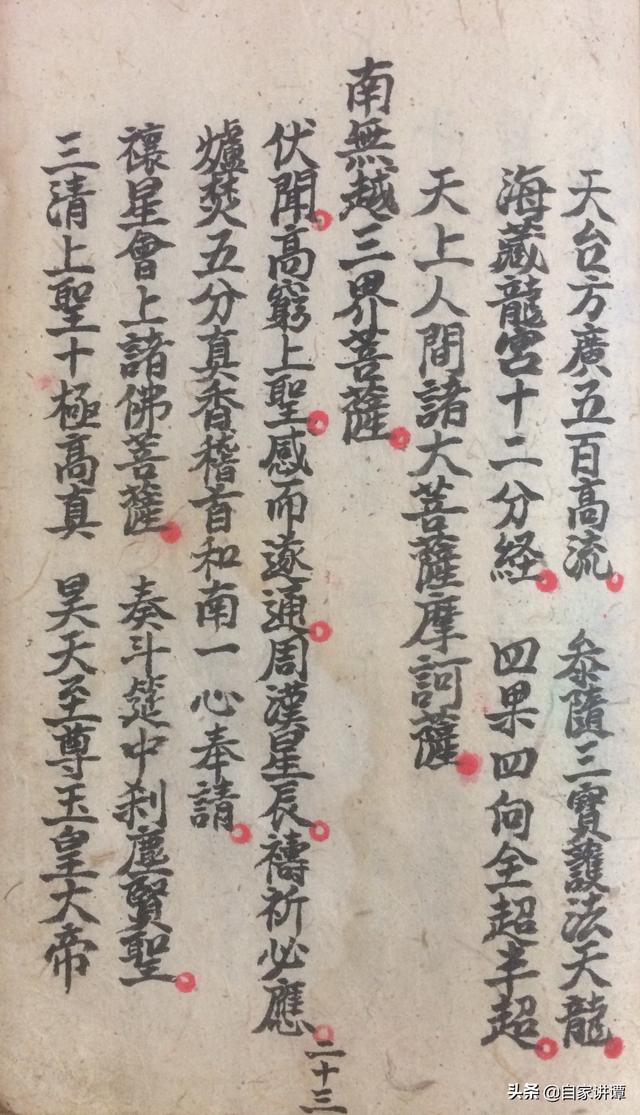 天台方廣五百高流 叅隨三寶護法天龍
海藏龍宮十二分経 四果四向全超半超
天上人間諸大菩薩摩訶薩
南無越三界菩薩
伏聞高窮上聖感而遂通周漢星辰禱祈必應
爐焚五分真香稽首和南一心奉請
禳星會上諸佛菩薩 奏斗筵中刹塵賢聖
三清上聖十極高真 昊天至尊玉皇大帝
二十三
头条 @自家讲谭